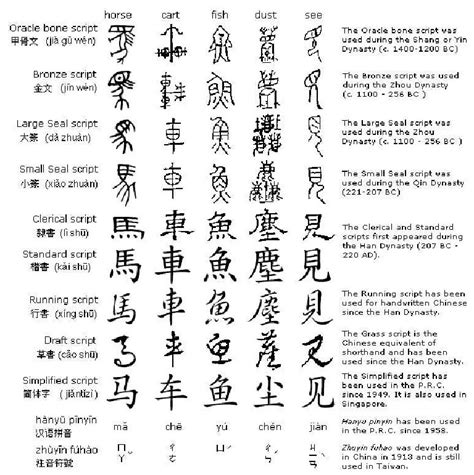 horse cart fish dust see
Oracle bone script
甲骨文 (jiǎ gǔ wén)
The Oracle bone script was
used during the Shang or Yin
Dynasty (c. 1400-1200 BC)
Bronze script
金文 (jīn wén)
The Bronze script was used
during the Zhou Dynasty
(c. 1100 - 256 BC )
Large Seal script
大篆 (dà zhuàn)
The Large Seal script was
used during the Zhou
Dynasty (c. 1100 - 256 BC )
Small Seal script
小篆 (xiǎo zhuàn)
The Small Seal script was
used during the Qin Dynasty
(221-207 BC)
Clerical script
隸書 (lì shū)
馬 車 魚 塵 見
The Clerical and Standard
scripts first appeared during
the Han Dynasty (207 BC -
220 AD).
Standard script
楷書 (kǎi shū)
馬 車 魚 塵 見
Running script
行書 (xíng shū)
馬 車 魚 塵 見
The Running script has been
used for handwritten Chinese
since the Han Dynasty.
Draft script
草書 (cǎo shū)
The Grass script is the
Chinese equivalent of
shorthand and has been
used since the Han Dynasty.
Simplified script
简体字 (jiǎntǐzì)
马 车 鱼 尘 见
The Simplified script has
been used in the P.R.C.
since 1949. It is also used in
Singapore.
hànyǔ pīnyīn
汉语拼音
mǎ chē yú chén jiàn
Hanyu pinyin has been used in
the P.R.C. since 1958.
zhùyīn fúhào
注音符號
Zhuyin fuhao was developed
in China in 1913 and is still
used in Taiwan.